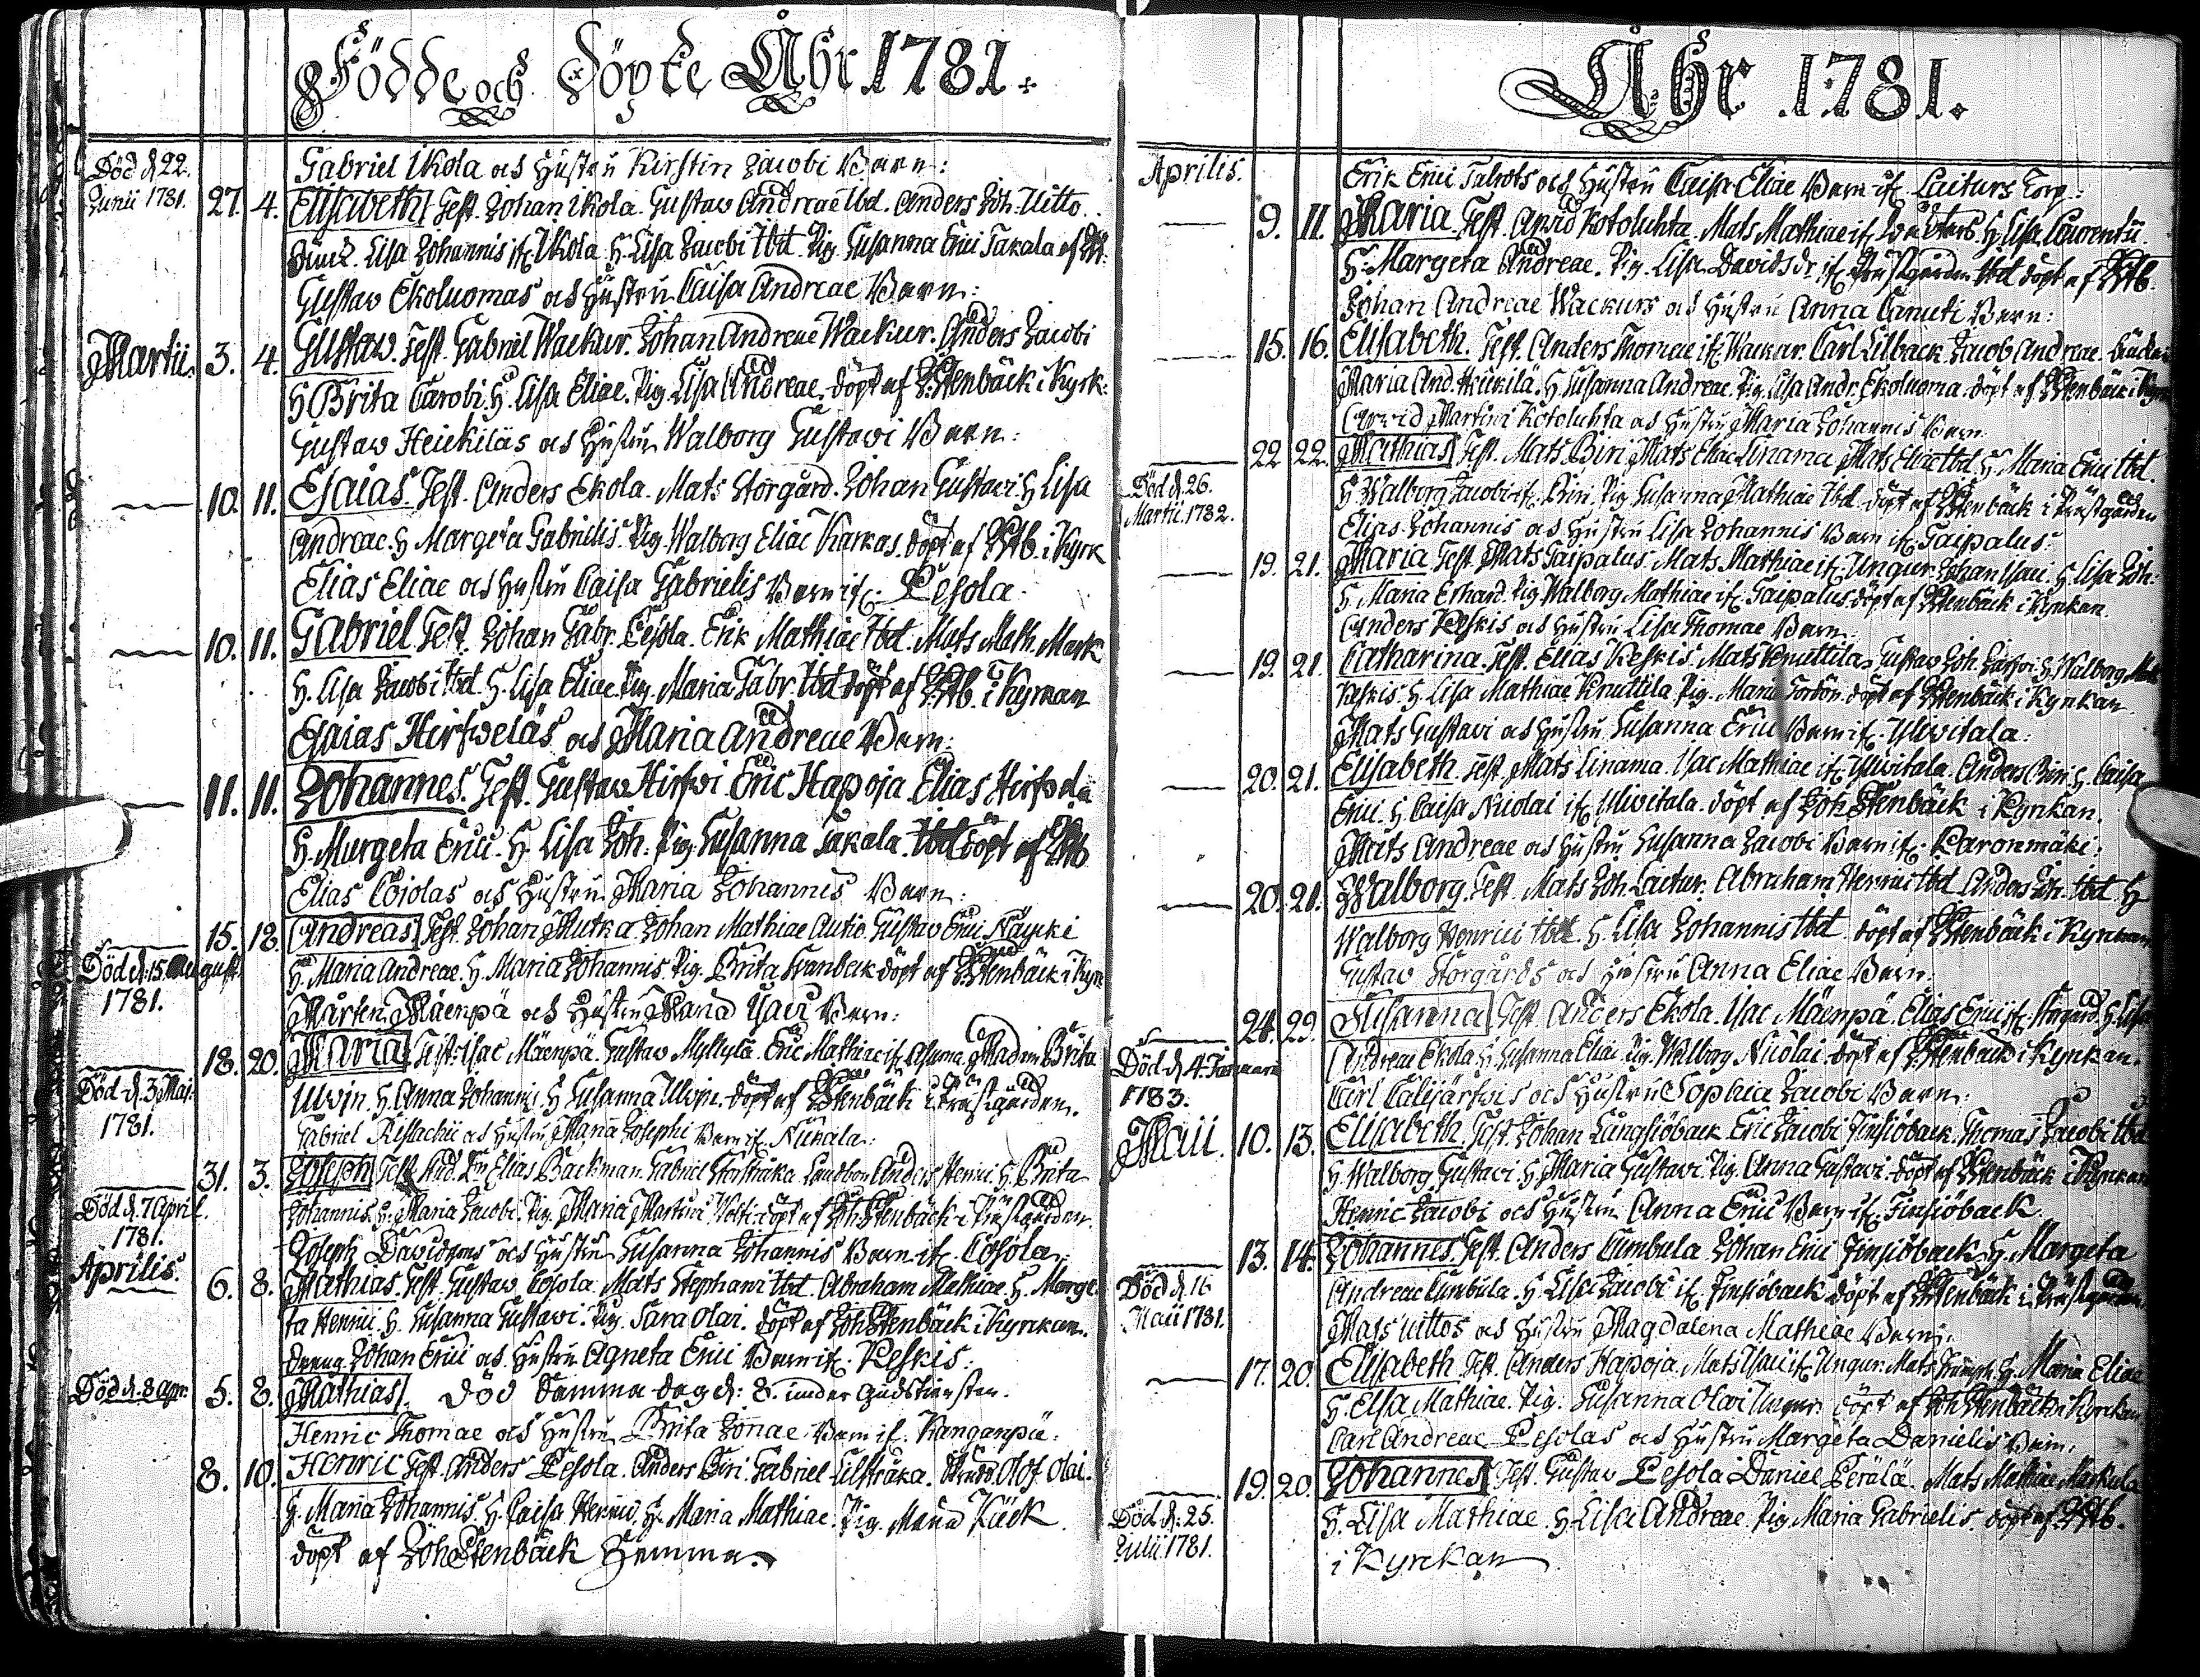 Födde och Döpte Åhr 1781.
Död d. 22.
Junii 1781.
Gabriel Ikola och Hustru Kirstin Jacobi Barn:
27. 4. Elisabeth Test. Johan Ikola. Gustav Andreae Ibd. Anders Joh. Uitto.
Lisa Johannis if. Ikola. H. Lisa Jacobi Ibd. Pig. Susanna Erici Takala
Gustav Ekoluomas och Hustru Caisa Andreae Barn:
Martii. 3. 4. Gustaw. Test. Gabriel Wackur. Johan Andreae Wackur. Anders Jacobi
H. Brita Jacobi. H. Lisa Eliae. Pig. Lisa Andreae. döpt af Stenbäck i Kyrk:
Gustav Heickiläs och Hustru Walborg Gustavi Barn:
10. 11. Esaias. Test. Anders Ekola. Mats Storgård. Johan Gustavi. H. Lisa
Andreae. H. Margeta Gabrielis. Pig. Walborg Eliae Karkas. döpt af Stb. i Kyrk
Elias Eliae och Hustru Caisa Gabrielis Barn if. Pesola.
10. 11. Gabriel Test. Johan Gabr. Pesola. Erik Mathiae Ibd. Mats Math. Mark
H. Lisa Jacobi Ibd. H. Lisa Eliae. Pig. Maria Gabr. Ibd döpt af Stb. i Kyrkan
Esaias Hirfweläs och Maria Andreae Barn:
11. 11. Johannes. Test. Gustav Hirfwi Eric Hapoja Elias Hirfwelä
H. Margeta Erici. H. Lisa Joh. Pig. Susanna Takala. Ibd döpt af Stb
Elias Coiolas och Hustru Maria Johannis Barn:
15. 18. Andreas Test. Johan Mutka. Johan Mathiae Autio. Gustav Erici Näycki
Död d. 15. Augusti
1781.
H. Maria Andreae. H. Maria Johannis. Pig. Brita Svanbeck döpt af Stenbäck i Kyrk
Mårten Mäenpä och Hustru Maria Isaci Barn:
18. 20. Maria Test. Isac Mäenpä. Gustav Myllylä. Eric Mathiae if. Asuma. Madam Brita
Död d. 3 Maji
1781.
Ulvin. H. Anna Johannis. H. Susanna Ulvin. döpt af Stenbäck i Prästgården.
Gabriel Eustachii och Hustru Maria Josephi Barn if. Nurkala:
31. 3. Joseph Test. Elias Backman. Gabriel Storstråka. Landbon Anders Henrici. H. Brita
Död d. 7 April.
1781.
Johannis. H. Maria Jacobi. Pig. Maria Martini döpt af Joh. Stenbäck i Prästgården.
Joseph Davidsons och Hustru Susanna Johannis Barn if. Cojola:
Aprilis. 6. 8. Mathias. Test. Gustav Cojola. Mats Stephani Ibd. Abraham Mathiae. H. Marge
ta Henrici. H. Susanna Gustavi. Pig. Sara Olai. döpt af Joh Stenbäck i Kyrckan.
Dreng Johan Erici och Hustru Agneta Erici Barn if. Keskis:
Död d. 8 Apr. 5. 8. Mathias. Död samma dag d: 8. under Gudstiensten.
Henric Thomae och Hustru Brita Jonae Barn if. Kanganpä:
8. 10. Henric Test. Anders Pesola. Anders Biri. Gabriel Lillstråka. Olof Olai.
H. Maria Johannis. H. Caisa Henrici. H. Maria Mathiae. Pig. Maria Käck.
döpt af Joh Stenbäck Hemma.
Åhr 1781.
Aprilis. Erik Erici Talwots och Hustru Caisa Eliae Barn if. Laiturs Torp:
9. 11. Maria. Test. Arvid Kotoluhta. Mats Mathiae if. H. Lisa Laurentii.
H. Margeta Andreae. Pig. Lisa Davids dr. if. Prästgården Ibd döpt af Stb.
Johan Andreae Wackurs och Hustru Anna Canuti Barn:
15. 16. Elisabeth. Test. Anders Thomae if. Wackur. Carl Lilback. Jacob Andreae.
Maria And. Heikilä. H. Susanna Andreae. Pig. Lisa Andr. Ekoluoma. döpt af Stenbäck i Kyrk
Arvid Martini Kotoluhta och Hustru Maria Johannis Barn
22 22. Mathias Test. Mats Biri Mats Eliae Linama Mats Eliae Ibd. H. Maria Erici Ibd.
Död d. 26.
Martii. 1782.
H. Walborg Jacobi if. Biri. Pig. Susanna Mathiae Ibd. döpt af Stenbäck i Prästgården
Elias Johannis och Hustru Lisa Johannis Barn if. Taipalus:
19. 21. Maria Test. Mats Taipalus. Mats Mathiae if. Ungur. Johan Isaci. H. Lisa Joh:
H. Maria Erhard. Pig. Walborg Mathiae if. Taipalus. döpt af Stenbäck i Kyrkan.
Anders Keskis och Hustru Lisa Thomae Barn:
19. 21. Catharina. Test. Elias Keskis. Mats Knuttila. Gustav Joh. H. Walborg
Keskis. H. Lisa Mathiae Knuttila. Pig. Maria Fordon. döpt af Stenbäck i Kyrkan
Mats Gustavi och Hustru Susanna Erici Barn if. Ylivitala:
20. 21. Elisabeth. Test. Mats Linama. Isac Mathiae if. Ylivitala. Anders Biri. H. Caisa
Erici. H. Caisa Nicolai if. Ylivitala. döpt af Joh Stenbäck i Kyrkan.
Mats Andreae och Hustru Susanna Jacobi Barn if. Paronmäki:
20. 21. Walborg. Test. Mats Joh. Laitur. Abraham Henrici Ibd Anders Joh. Ibd H
Walborg Henrici Ibd. H. Lisa Johannis Ibd. döpt af Stenbäck i Kyrkan
Gustav Storgårds och Hustru Anna Eliae Barn:
24. 29. Susanna Test. Anders Ekola. Isac Mäenpä. Elias Erici if. Storgård. H. Lisa
Död d. 4. Januarii
1783.
Andreae Ekola H. Susanna Eliae. Pig. Walborg Nicolai. döpt af Stenbäck i Kyrkan.
Carl Calijärfwis och Hustru Sophia Jacobi Barn:
Maii. 10. 13. Elisabeth. Test. Johan Lungsjöback. Eric Jacobi Finsjöback. Thomas Jacobi Ibd
H. Walborg Gustavi. H. Maria Gustavi. Pig. Anna Gustavi. döpt af Stenbäck i Kyrkan
Henric Jacobi och Hustru Anna Erici Barn if. Finsjöback.
13. 14. Johannes. Test. Anders Cumbula Johan Erici Finsjöback. H. Margeta
Död d. 16
Maii 1781.
Andreae Cumbula. H. Lisa Jacobi if. Finsjöback döpt af Stenbäck i Prästgården
Mats Uittos och Hustru Magdalena Mathiae Barn:
17. 20. Elisabeth. Test. Anders Hapoja. Mats Isaci if. Ungur. Mats H. Maria Eliae
H. Elsa Mathiae. Pig. Susanna Olai Ungur. döpt af Joh Stenbäck i Kyrkan
Carl Andreae Pesolas och Hustru Margeta Danielis Barn.
19. 20. Johannes Test. Gustav Pesola Daniel Perälä. Mats Mathiae Markula
Död d. 25.
Julii 1781.
H. Lisa Mathiae. H. Lisa Andreae. Pig. Maria Gabrielis. döpt af Stb.
i Kyrckan